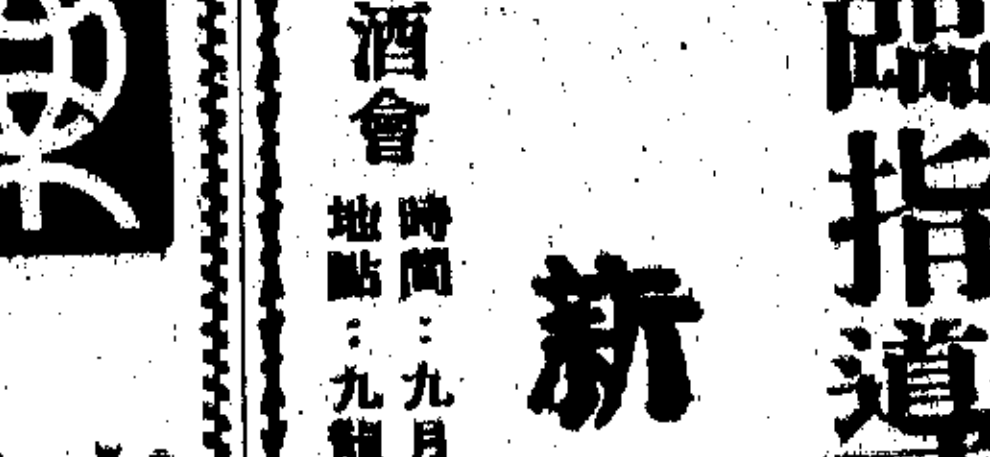 臨指導
新
酒會
時間：九月
地點：九龍